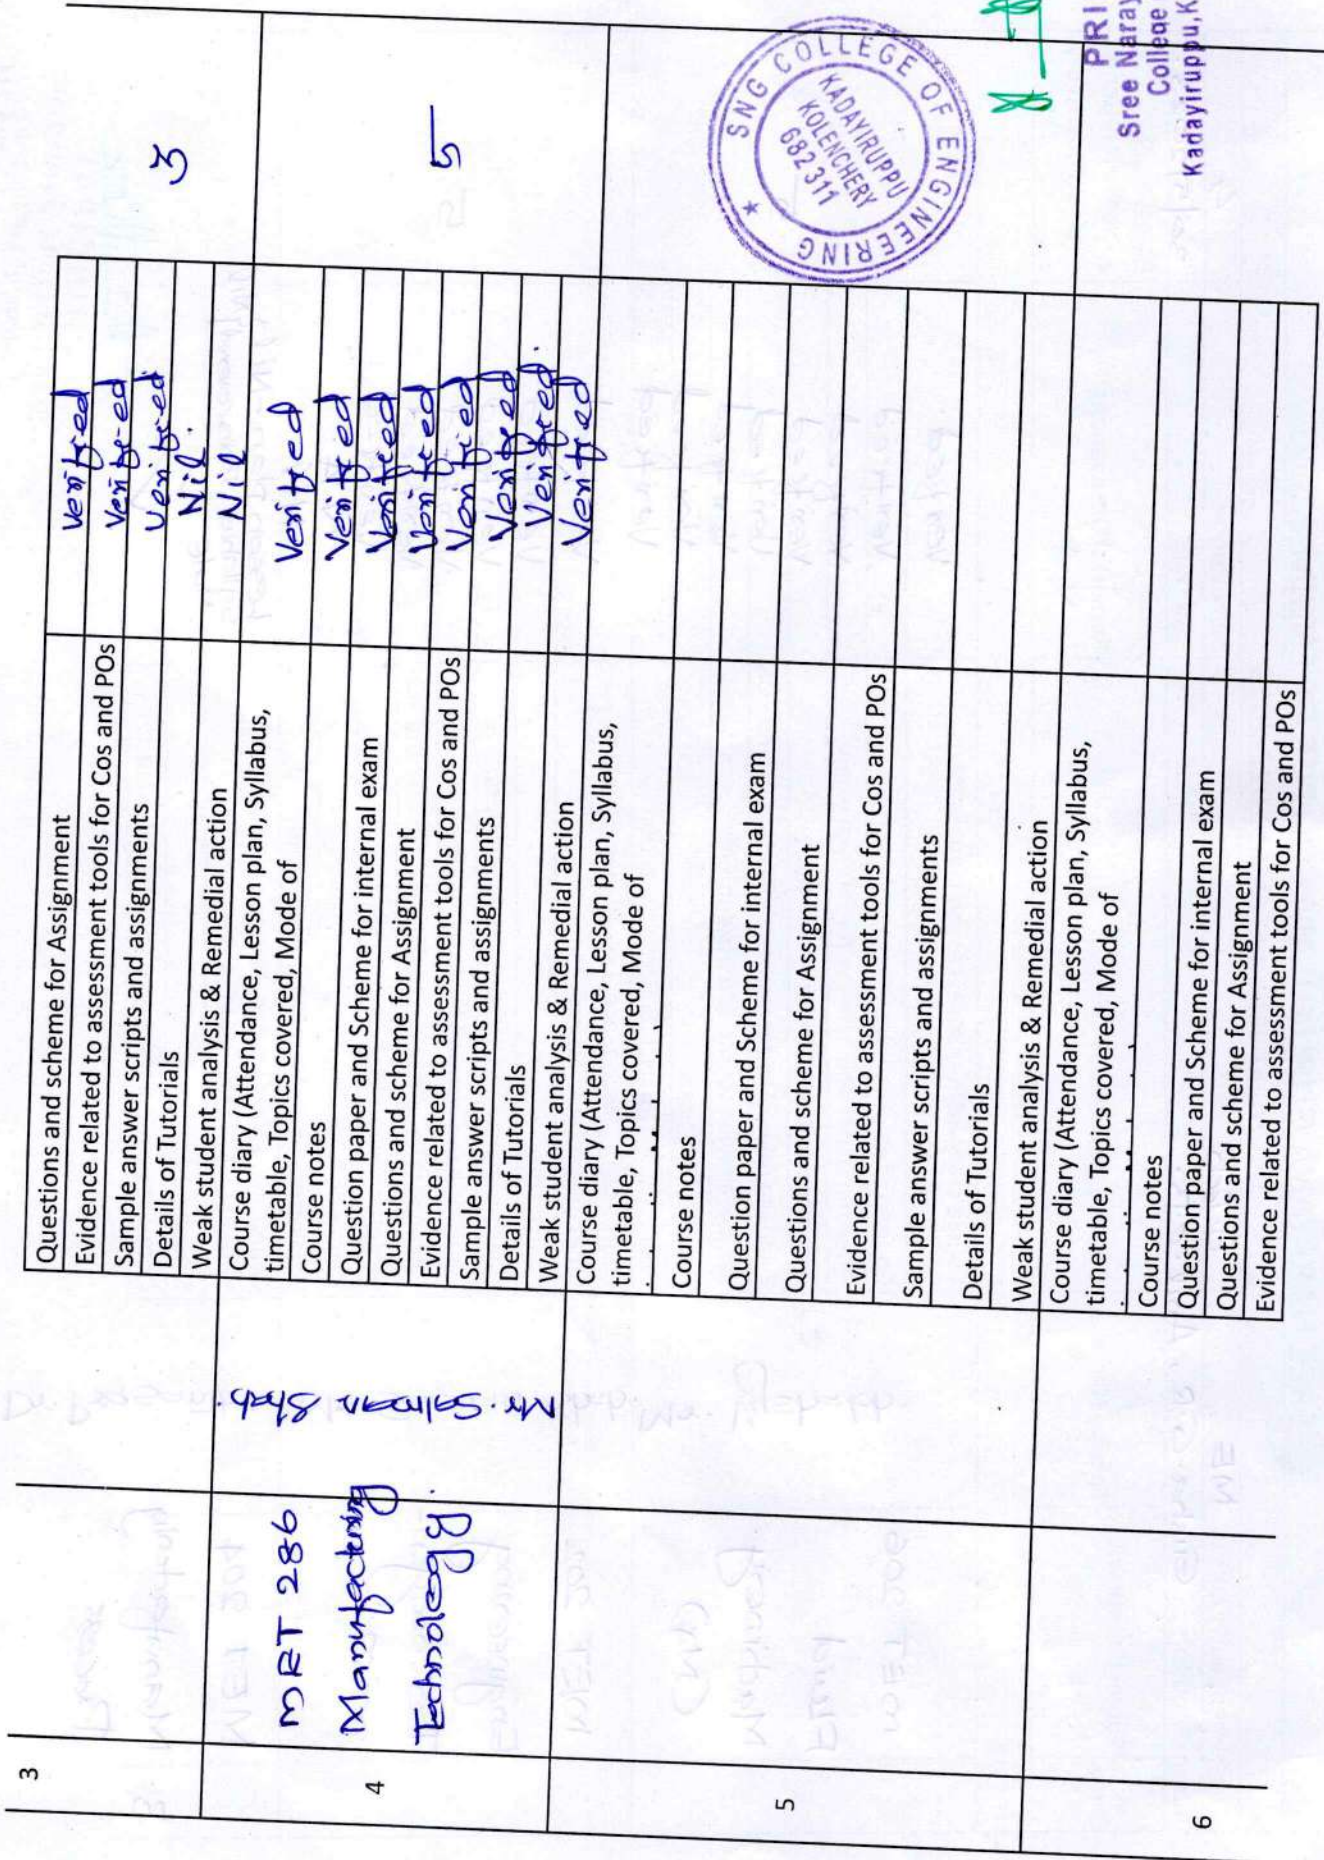 3
Questions and scheme for Assignment
Verified
Evidence related to assessment tools for Cos and POs
Verified
Sample answer scripts and assignments
Verified
Details of Tutorials
Nil
Weak student analysis & Remedial action
Nil
3
4
MRT 286
Manufacturing
Technology
Mr. Salman
Shah
Course diary (Attendance, Lesson plan, Syllabus,
timetable, Topics covered, Mode of
Verified
Course notes
Verified
Question paper and Scheme for internal exam
Verified
Questions and scheme for Assignment
Verified
Evidence related to assessment tools for Cos and POs
Verified
Sample answer scripts and assignments
Verified
Details of Tutorials
Verified.
Weak student analysis & Remedial action
Verified
5
5
Course diary (Attendance, Lesson plan, Syllabus,
timetable, Topics covered, Mode of
Course notes
Question paper and Scheme for internal exam
Questions and scheme for Assignment
Evidence related to assessment tools for Cos and POs
Sample answer scripts and assignments
Details of Tutorials
Weak student analysis & Remedial action
SNG COLLEGE OF ENGINEERING
KADAYIRUPPU
KOLENCHERY
682 311
6
Course diary (Attendance, Lesson plan, Syllabus,
timetable, Topics covered, Mode of
Course notes
Question paper and Scheme for internal exam
Questions and scheme for Assignment
Evidence related to assessment tools for Cos and POs
PRI
Sree Naray
College
Kadayiruppu, K